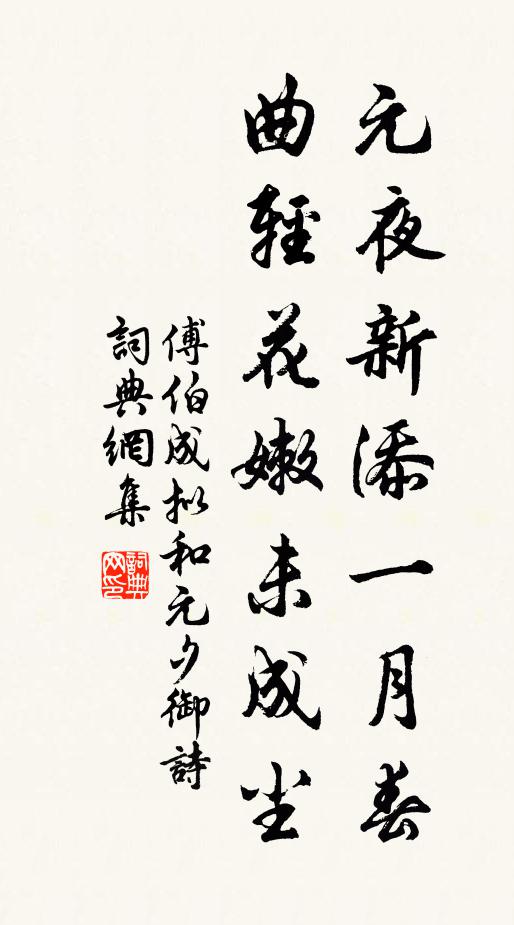 元夜新添一月春
曲輕花嫩未成尘
傅伯成拟和元夕御詩
詞典網集
詞典網印